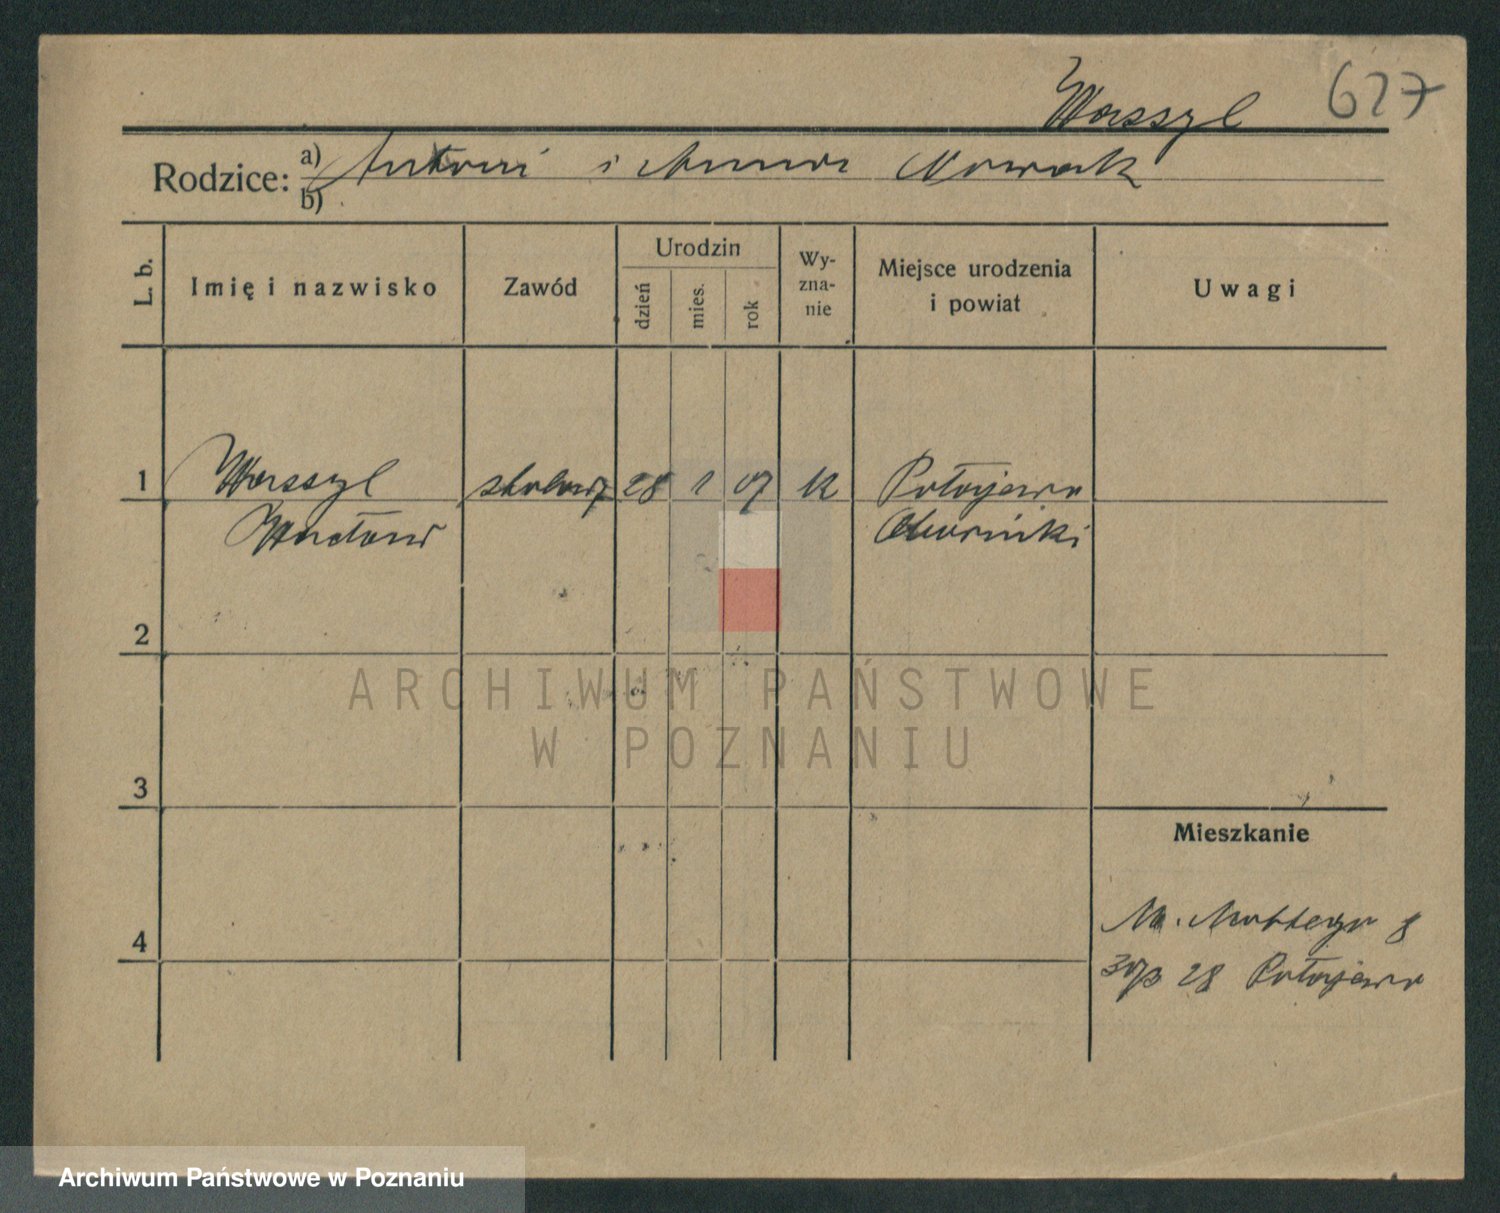 Warszyl 677
Rodzice: a) Antoni i Anna Nowak
b)
L. b.
Imię i nazwisko
Zawód
Urodzin
dzień
mies.
rok
Wy-
zna-
nie
Miejsce urodzenia
i powiat
Uwagi
1 Warszyl 28 1 07 Połajewo
Wacław Oborniki
2
3
4
Mieszkanie
M. 8
28 Połajewo
ARCHIWUM PAŃSTWOWE
W POZNANIU
Archiwum Państwowe w Poznaniu